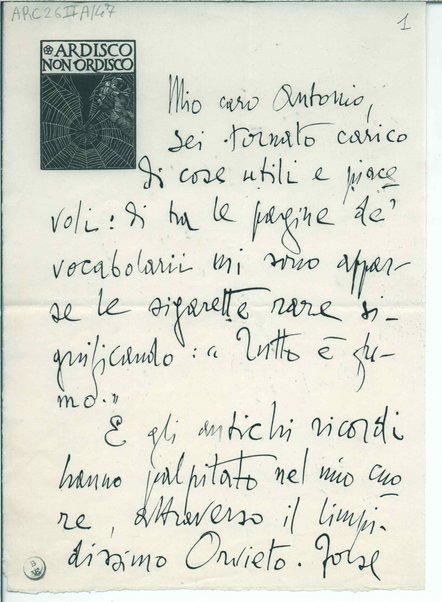 ARC 26 II A/47
1
ARDISCO
NON ORDISCO
Mio caro Antonio,
sei tornato carico
di cose utili e piace
voli: di tra le pagine de'
vocabolarii mi sono appar-
se le sigarette rare si-
gnificando: "Tutto è fu-
mo."
E gli antichi ricordi
hanno palpitato nel mio cuo
re, attraverso il limpi-
dissimo Orvieto. Forse